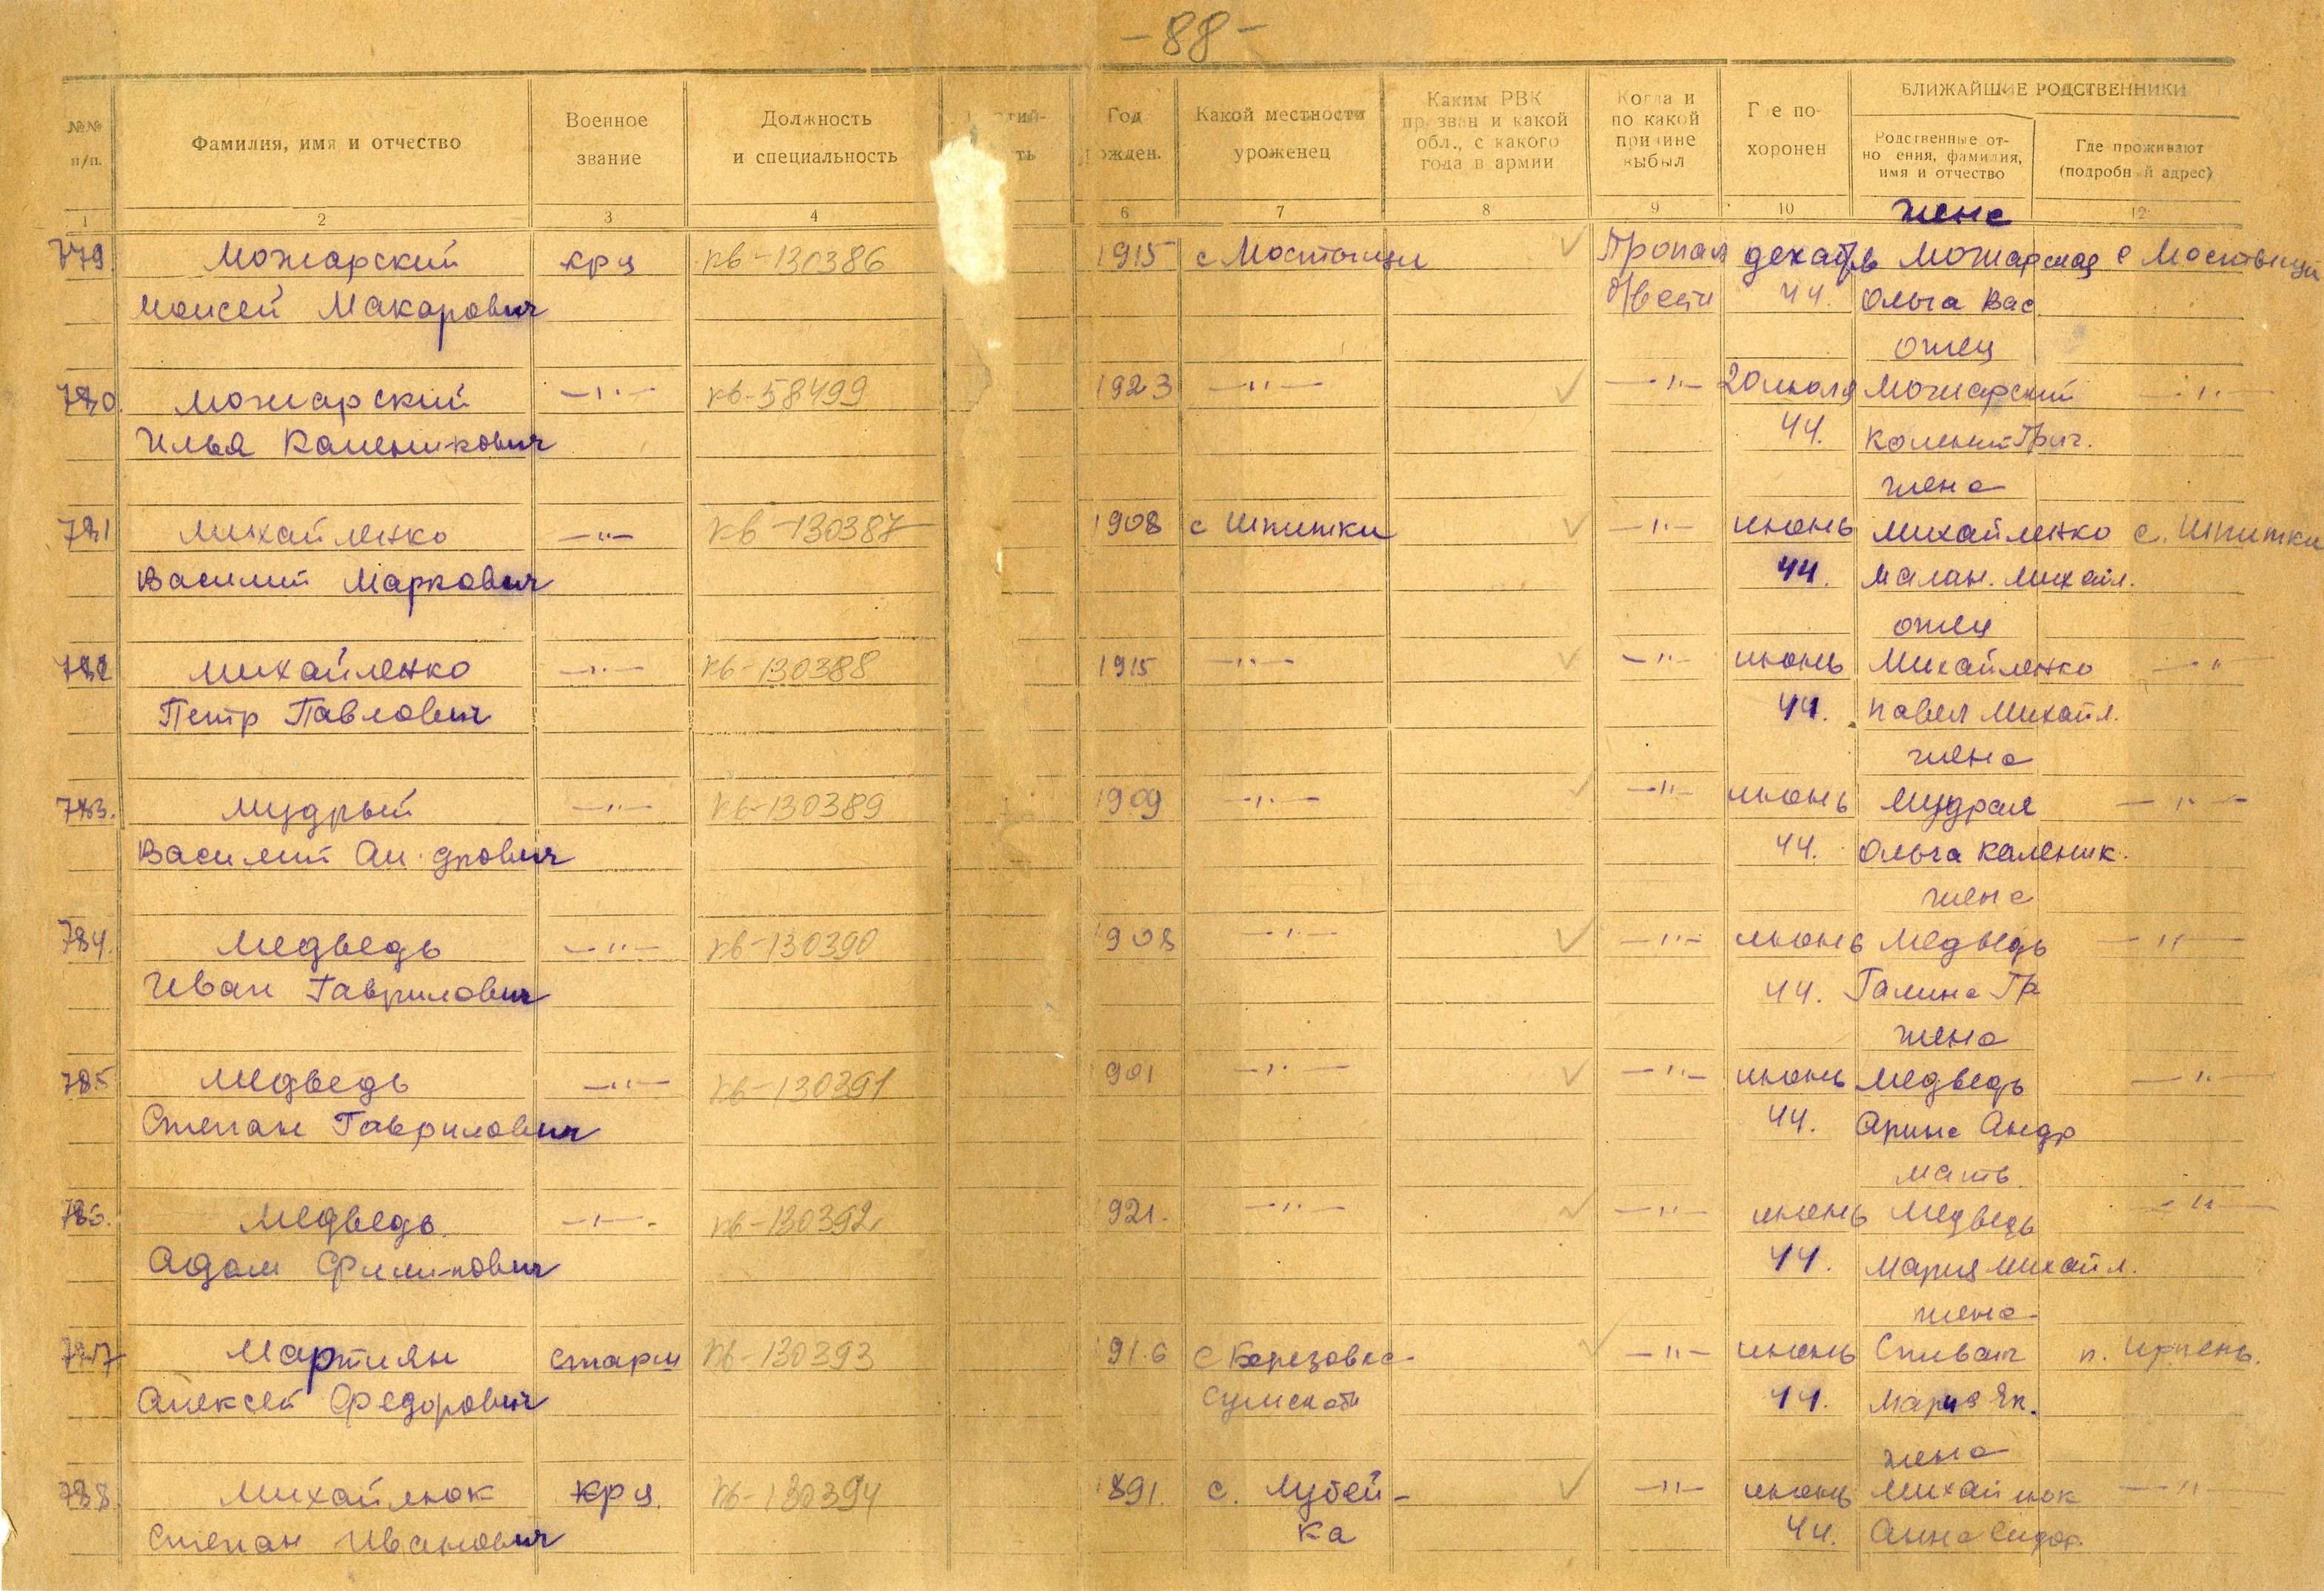 -88-
№№ п/п.
Фамилия, имя и отчество
Военное звание
Должность и специальность
Год рожден.
Какой местности уроженец
Каким РВК призван и какой обл., с какого года в армии
Когда и по какой причине выбыл
Где похоронен
БЛИЖАЙШИЕ РОДСТВЕННИКИ
Родственные отношения, фамилия, имя и отчество
Где проживают (подробный адрес)
1 2 3 4 6 7 8 9 10 12
жена
779. Можарский кр-ц кв-130386 1915 с Мостищи Пропал декабрь Можарская с Мостищи
Моисей Макарович б/вести 44. Ольга Вас.
отец
780. Можарский —"— кв-58499 1923 —"— —"— 20 июля Можарский —"—
Илья Каленикович 44. Коленик Григ.
жена
781 Михайленко —"— кв-130387 1908 с Шпитки —"— июнь Михайленко с. Шпитки
Василий Маркович 44. Малан. Михайл.
отец
782 Михайленко —"— кв-130388 1915 —"— —"— июнь Михайленко —"—
Петр Павлович 44. Павел Михайл.
жена
783. Мудрый —"— кв-130389 1909 —"— —"— июнь Мудрая —"—
Василий Ан. дрович 44. Ольга Каленик.
жена
784. Медведь —"— кв-130390 1908 —"— —"— июнь Медведь —"—
Иван Гаврилович 44. Галина Гр
жена
785 Медведь —"— кв-130391 1901 —"— —"— июнь Медведь —"—
Степан Гаврилович 44. Арина Андр
мать.
786. Медведь. —"— кв-130392 1921. —"— —"— июнь Медведь —"—
Адам Филипович 44. Мария Михайл.
жена
787 Мартиян старш кв-130393 1916 с Березовка —"— июнь Спивак п. Ирпень.
Алексей Федорович Сумской 44. Мария Як.
жена
788. Михайлюк кр-ц. кв-130394 1891. с. Лубей- —"— июнь Михайлюк —"—
Степан Иванович ка 44. Анна Сидор.